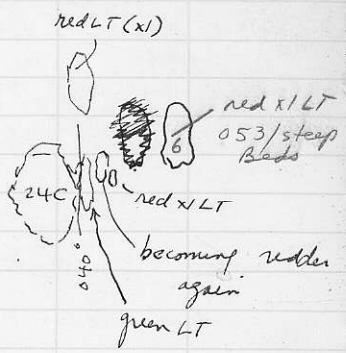 red LT (x1)
red x1 LT
053/steep
Beds
6
24C
red x1 LT
040°
becoming redder
again
green LT